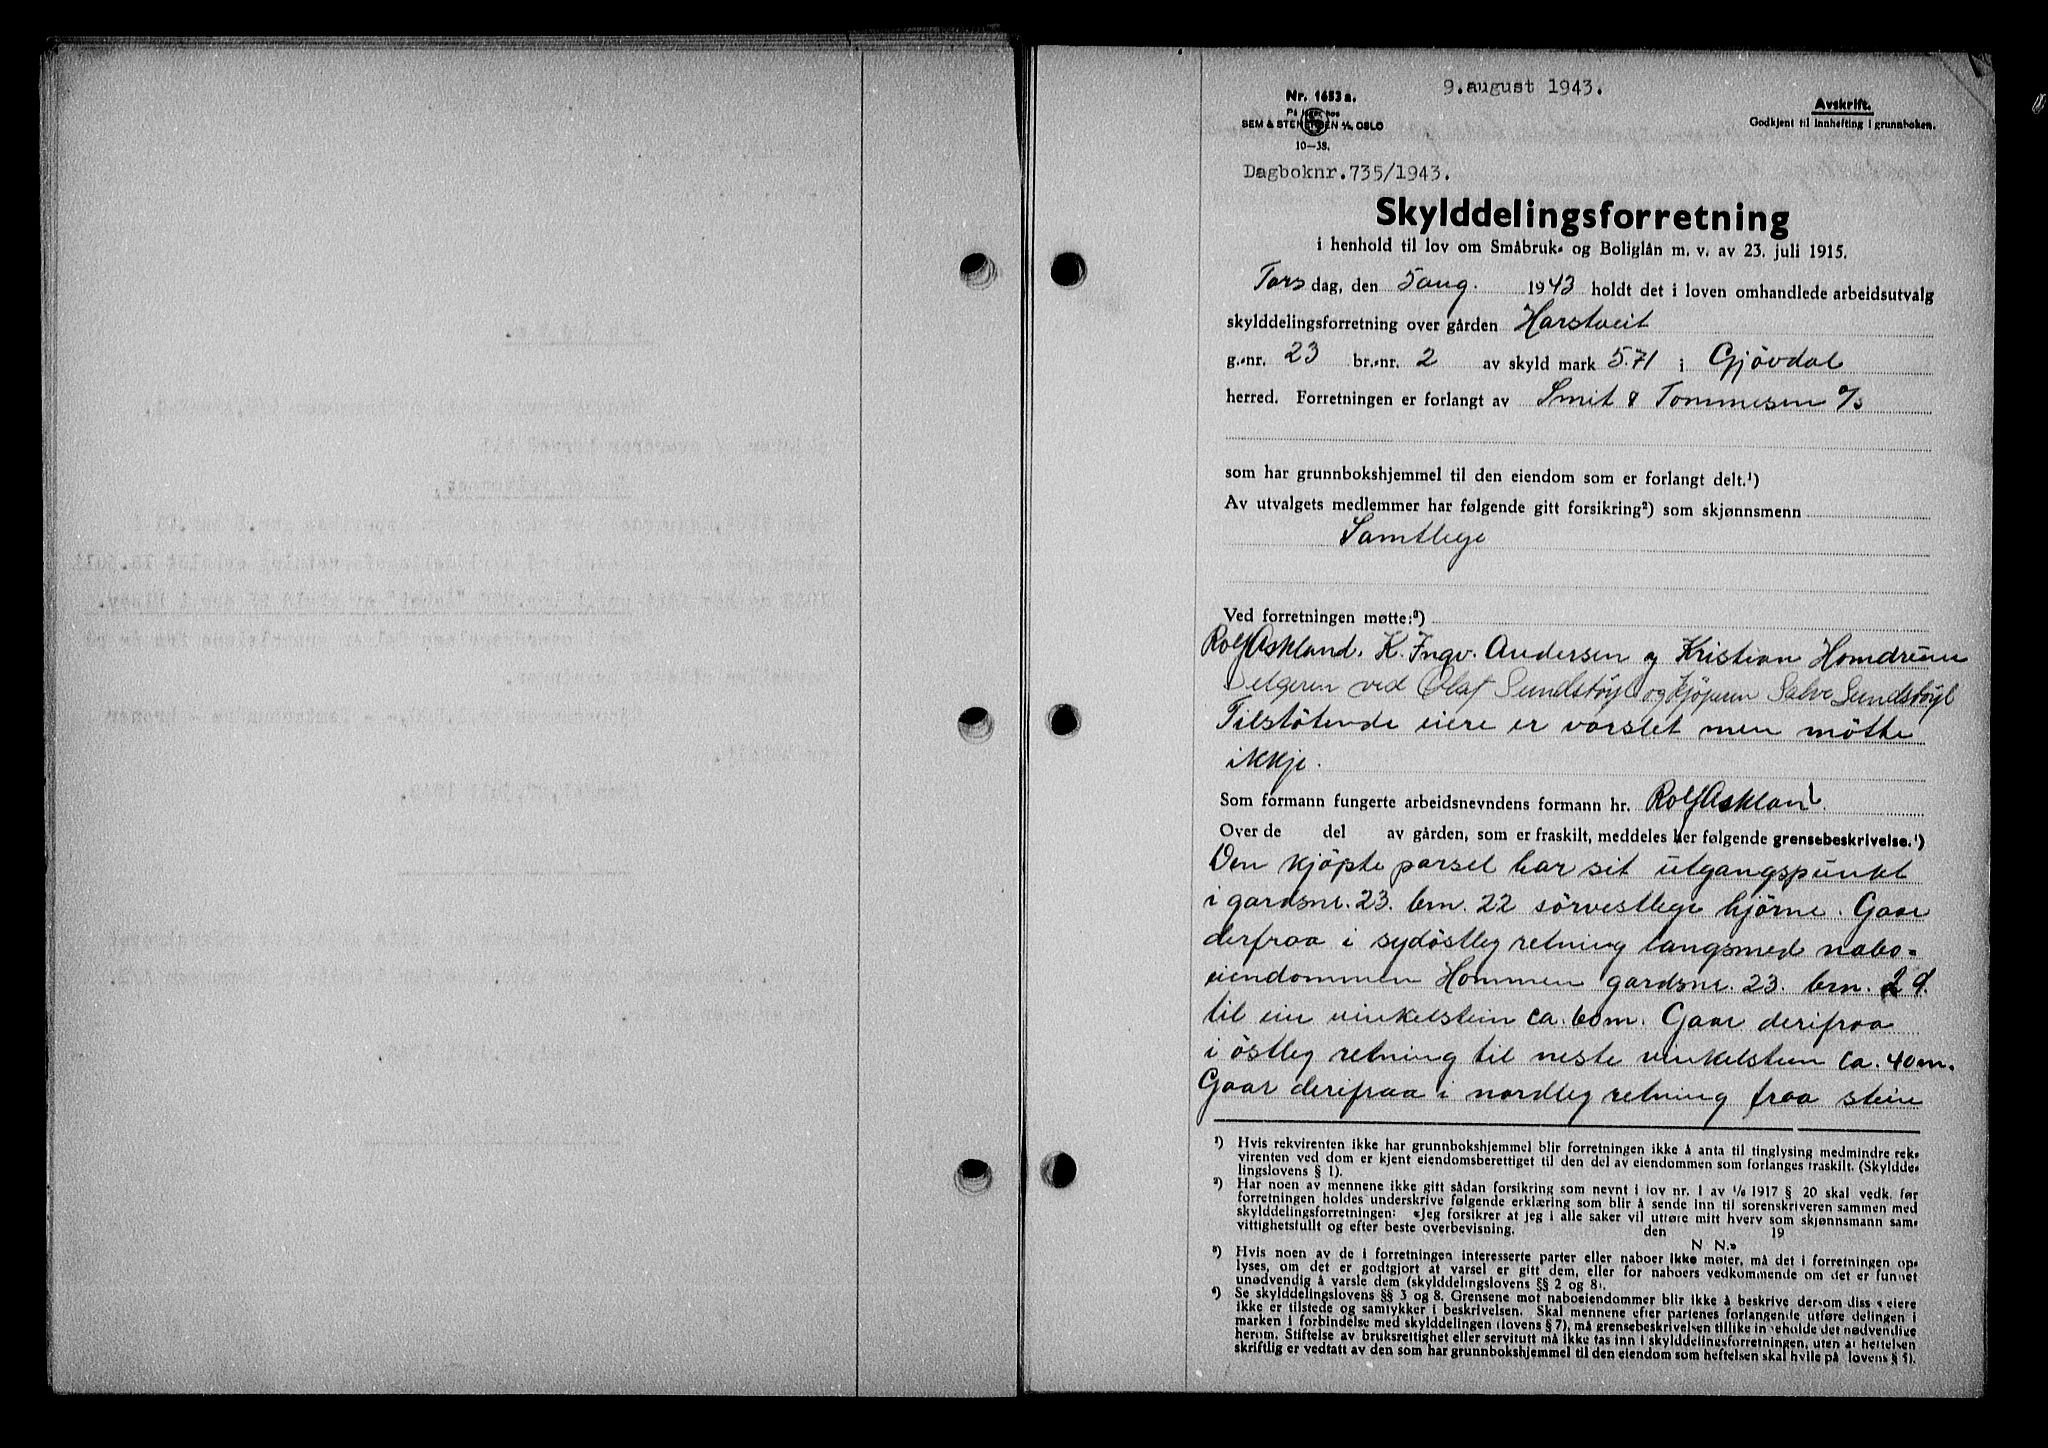 9.august 1943.
Nr. 1653 a.
På lager hos
SEM & STENERSEN A/S OSLO
10—38.
Avskrift.
Godkjent til innhefting i grunnboken.
Dagboknr.735/1943.
Skylddelingsforretning
i henhold til lov om Småbruk- og Boliglån m. v. av 23. juli 1915.
Tors dag, den 5 aug. 1943 holdt det i loven omhandlede arbeidsutvalg
skylddelingsforretning over gården Harstveit
g.-nr. 23 br.-nr. 2 av skyld mark 5.71 i Gjövdal
herred. Forretningen er forlangt av Smit & Tommesen a/s
som har grunnbokshjemmel til den eiendom som er forlangt delt.¹)
Av utvalgets medlemmer har følgende gitt forsikring²) som skjønnsmenn
Samtlege
Ved forretningen møtte:³)
Rolf Askland. K. Ingv. Andersen og Kristian Homdrum
Selgeren ved Olaf Sundstöyl og Kjöperen Salve Sundstöyl
Tilstötende eiere er varslet men mötte
ikkje.
Som formann fungerte arbeidsnevndens formann hr. Rolf Askland.
Over de del av gården, som er fraskilt, meddeles her følgende grensebeskrivelse.⁴)
Den kjöpte parsel har sit utgangspunkt
i gardsnr. 23. brn. 22 sörvestlege hjörne. Gaar
derfraa i sydöstleg retning langsmed nabo-
eiendommen Hommen gardsnr. 23. brn. 29.
til ein vinkelstein ca. 60m. Gaar derifraa
i östleg retning til neste vinkelstein ca. 40m.
Gaar derifraa i nordleg retning fraa stein
¹) Hvis rekvirenten ikke har grunnbokshjemmel blir forretningen ikke å anta til tinglysing medmindre rek-
virenten ved dom er kjent eiendomsberettiget til den del av eiendommen som forlanges fraskilt. (Skyldde-
lingslovens § 1).
²) Har noen av mennene ikke gitt sådan forsikring som nevnt i lov nr. 1 av 1/6 1917 § 20 skal vedk. før
forretningen holdes underskrive følgende erklæring som blir å sende inn til sorenskriveren sammen med
skylddelingsforretningen: «Jeg forsikrer at jeg i alle saker vil utføre mitt hverv som skjønnsmann sam-
vittighetsfullt og efter beste overbevisning. den 19
N N.»
³) Hvis noen av de i forretningen interesserte parter eller naboer ikke møter, må det i forretningen op-
lyses, om det er godtgjort at varsel er gitt dem, eller for naboers vedkommende om det er funnet
unødvendig å varsle dem (skylddelingslovens §§ 2 og 8).
⁴) Se skylddelingslovens §§ 3 og 8. Grensene mot naboeiendommer blir ikke å beskrive dersom disses eiere
ikke er tilstede og samtykker i beskrivelsen. Skal mennene efter partenes forlangende utføre delingen i
marken i forbindelse med skylddelingen (lovens § 7), må grensebeskrivelsen tillike inneholde det nødvendige
herom. Stiftelse av bruksrettighet eller servitutt må ikke tas inn i skylddelingsforretningen, uten at heftelsen
skriftlig er vedtatt av den som har grunnbokshjemmel til den eiendom som heftelsen skal hvile på (lovens § 5).